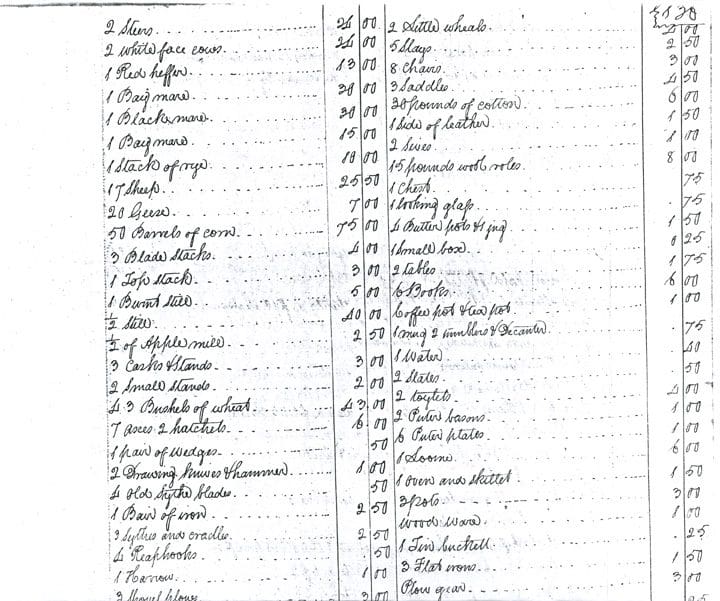 2 Steers 24 00
2 white face cows 24 00
1 Red heffer 13 00
1 Baiy mare 30 00
1 Black mare 30 00
1 Baiy mare 15 00
1 Stack of rye 10 00
17 Sheep 25 50
20 Geese 7 00
50 Barrels of corn 75 00
3 Blade Stacks 4 00
1 Top Stack 3 00
1 Burnt Still 5 00
½ Still 40 00
½ of Apple mill 2 50
3 Casks & Stands 3 00
2 Small Stands 2 00
43 Bushels of wheat 43 00
7 axes 2 hatchets 6 00
1 pair of wedges 50
2 Drawing knives & hammer 1 00
4 old sythe blades 50
1 Bair of iron 2 50
3 Sythes and cradles 2 50
4 Reaphooks 50
1 Harrow 1 00
3 Shovel plows 3 00
2 Little wheals 00
5 Slays 2 50
8 Chairs 3 00
3 Saddles 4 50
30 pounds of cotton 6 00
1 Side of leather 1 50
2 Sives 1 00
15 pounds wool roles 8 00
1 Chest 75
1 looking glass 75
4 Butter pots & 1 jug 1 50
1 Small box 0 25
2 tables 1 75
6 Books 6 00
Coffee pot & tea pot 1 00
1 mug 2 tumblers & Decanter 75
1 Water 40
2 Slates 50
2 toylets 4 00
2 Puter basons 1 00
6 Puter plates 1 00
1 Loome 6 00
1 oven and skillet 1 50
3 pots 3 00
wood ware 1 00
1 Tin buckett 25
3 Flat irons 1 50
Plow gear 3 00
25